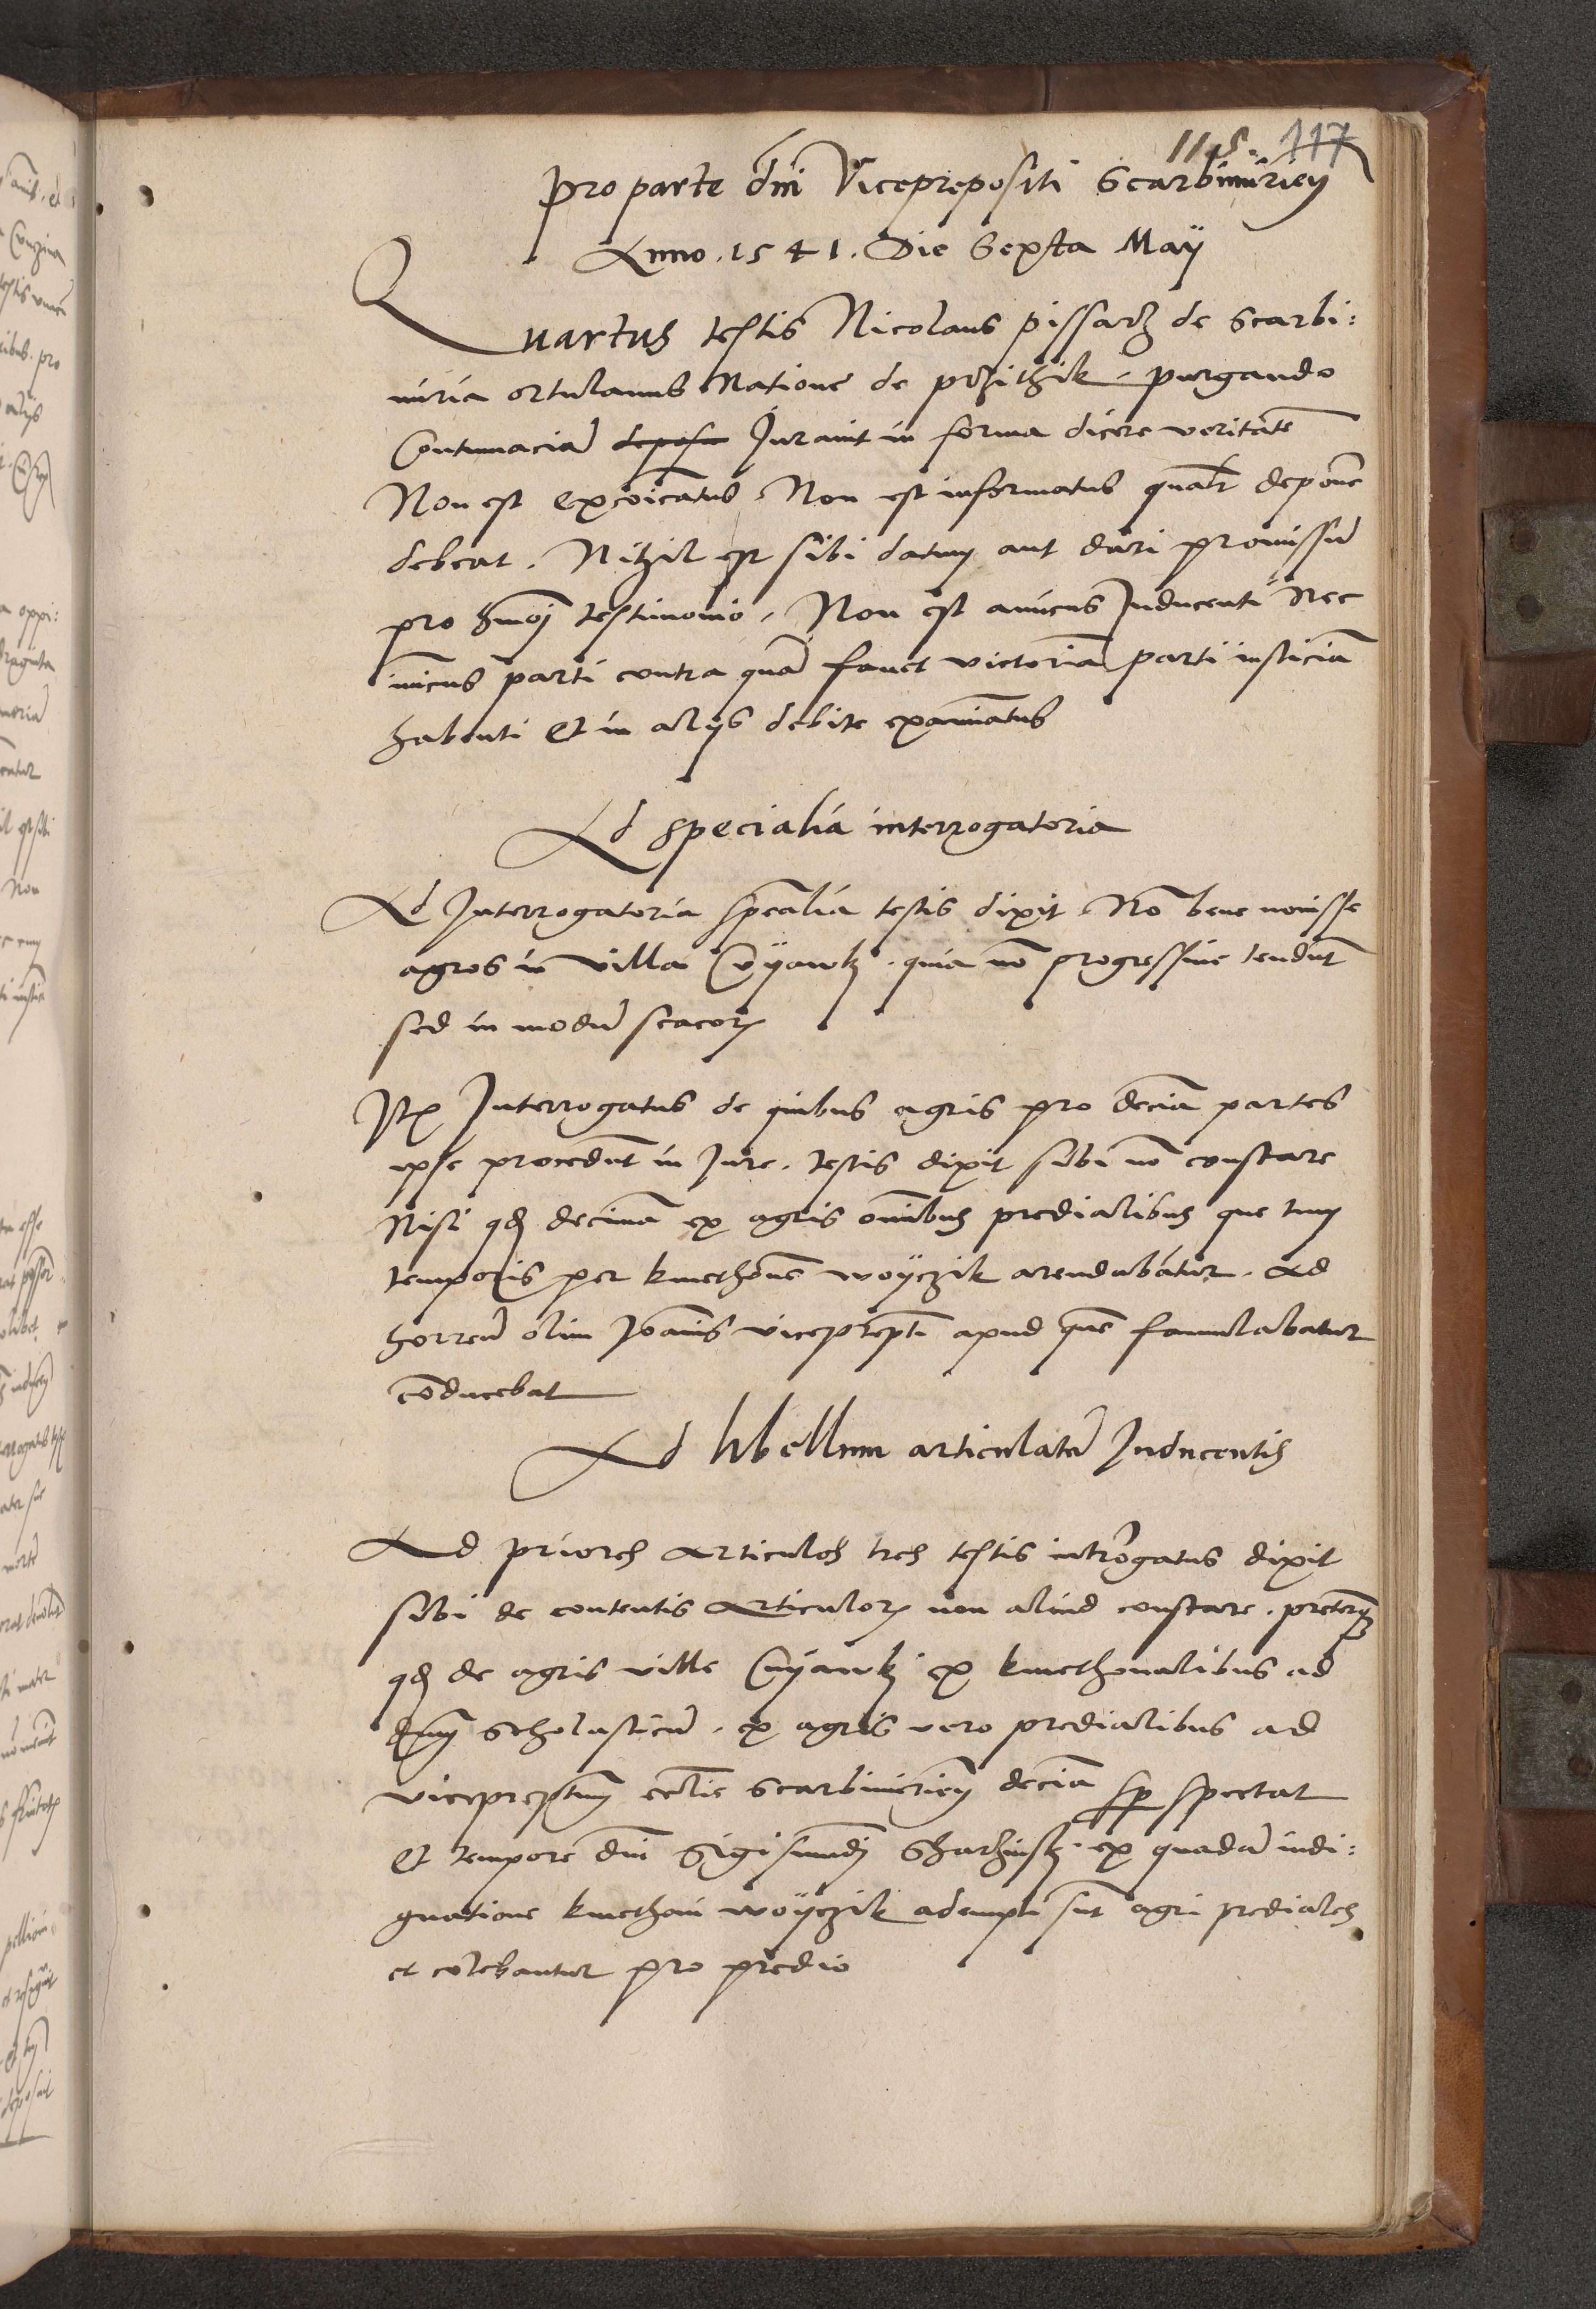 115. 117
Pro parte dni Viceprepositi Scarbimirien
Anno .1541. Die Sexta Maij
Quartus testis Nicolaus pissarz de Scarbi:
miria ortulanus Natione de przithik . purgando
Contumaciam depos Juravit in forma dicere veritate
Non est excoicatus . Non est informatus qualr deponere
debeat . Nihil est sibi datum aut dari promissu
pro hmoi testimonio . Non est amicus Inducenti Nec
inimicus parti contra qua favet victoria parti iusticia
habenti Et in alijs debite examinatus
Ad specialia interrogatoria
Ad Interrogatoria spealia testis dixit . No bene novisse
agros in villa Cuyawky . quia no progressive tendut
sed in modu scacor
Itm Interrogatus de quibus agris pro decia partes
ipse procedut in Jure . testis dixit sibi no constare
Nisi qd decima ex agris omibus predialibus que tum
temporis per kmethone woyczik arendabatur . ad
horreu olim Joanis viceprepti apud que famulabatur
coducebat
Ad libellum articulatu Inducentis
Ad priores articulos tres testis introgatus dixit
sibi de contentis articulor non aliud constare . preterq
qd de agris ville Cuyawky ex kmethonalibus ad
dnum Scholasticu . ex agris vero predialibus ad
vicepreptum ecclie Scarbimirien decia sp spectat
Et tempore dni Sigismudi ex quada indi:
gnatione kmethoni woyczik adempti sut agri prediales
et colebantur pro predio